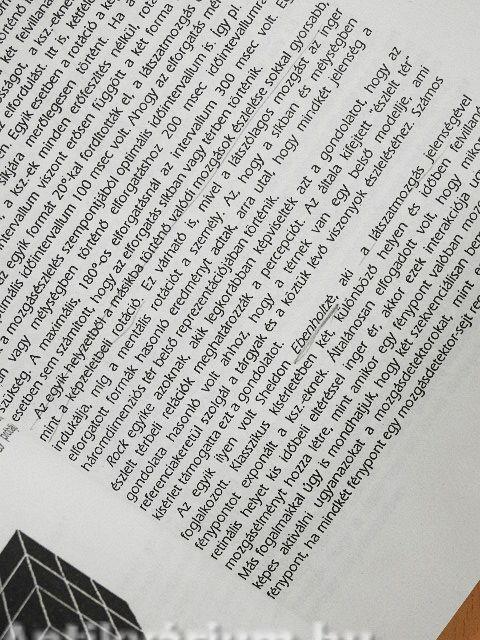 két felvillaná
az elfordulást. Itt is, kéttéle
en. Egyik esetben a rotáció a ké
síkjára merőlegesen történt. Ha a
a ksz-ek minden erőfeszítés nélkül, rotá
intervallum viszont erősen függött a két forma
az egyik formát 20°-kal fordították el, a látszatmozgás
imális időintervallum 100 msec volt. Ahogy az elforgatás mér
a mozgásészlelés szempontjából optimális időintervallum is. Így pl.
szükség. A maximális, 180°-os elforgatásnál az intervallum 300 msec volt. Eg
an vagy mélységben történő elforgatáshoz 200 msec időintervallumra
esetben sem számított, hogy az elforgatás síkban vagy térben történik.
Az egyik helyzetből a másikba történő valódi mozgások észlelése sokkal gyorsabb,
mint a képzeletbeli rotáció. Ez várható is, mivel a látszólagos mozgást az inger
indukálja, míg a mentális rotációt a személy. Az, hogy a síkban és mélységben
elforgatott formák hasonló eredményt adtak, arra utal, hogy mindkét jelenség a
háromdimenziós tér belső reprezentációjában történik.
Rock egyike azoknak, akik legkorábban képviselték azt a gondolatot, hogy az
észlelt térbeli relációk meghatározzák a percepciót. Az általa kifejtett észlelt tér
gondolata hasonló volt ahhoz, hogy a térnek van egy belső modellje, ami
referenciakeretül szolgál a tárgyak és a köztük lévő viszonyok észleléséhez. Számos
kísérlet támogatta ezt a gondolatot.
Az egyik ilyen volt Sheldon Ebenholzé, aki a látszatmozgás jelenségével
foglalkozott. Klasszikus kísérletében két különböző helyen és időben felvillanó
fénypontot exponált a ksz.-eknek. Általánosan elfogadott volt, hogy mikor
retinális helyet kis időbeli eltéréssel inger ér, akkor ezek interakciója ug
mozgásélményt hozza létre, mint amikor egy fénypont valóban mozo
Más fogalmakkal úgy is mondhatjuk, hogy két szekvenciálisan be
képes aktiválni ugyanazokat a mozgásdetektorokat, mint e
fénypont, ha mindkét fénypont egy mozgásdetektor-sejt re